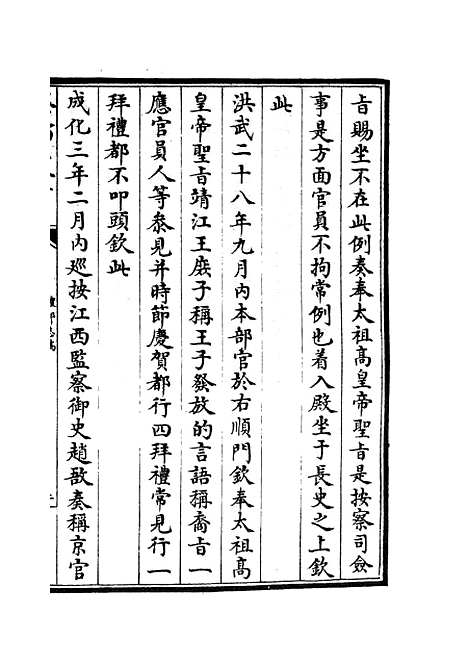 旨賜坐不在此例奏奉太祖高皇帝聖旨是按察司僉
事是方面官員不拘常例也着入殿坐于長史之上欽
此
洪武二十八年九月内本部官於右順門欽奉太祖高
皇帝聖旨靖江王庶子稱王子發放的言語稱裔旨一
應官員人等叅見并時節慶賀都行四拜禮常見行一
拜禮都不叩頭欽此
成化三年二月内廵按江西監察御史趙敔奏稱京官